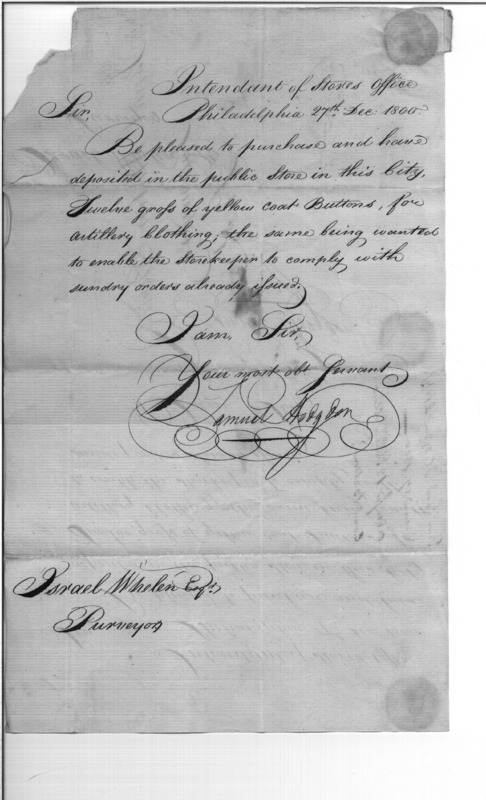 Intendant of Stores Office
Sir, Philadelphia 27th Dec 1800.
Be pleased to purchase and have
deposited in the public Store in this City,
Twelve gross of yellow coat Buttons, for
Artillery Clothing; the same being wanted
to enable the Storekeeper to comply with
sundry orders already issued.
I am, Sir,
Your most obt Servant
Samuel Hodgdon
Israel Whelen Esqr.
Purveyor